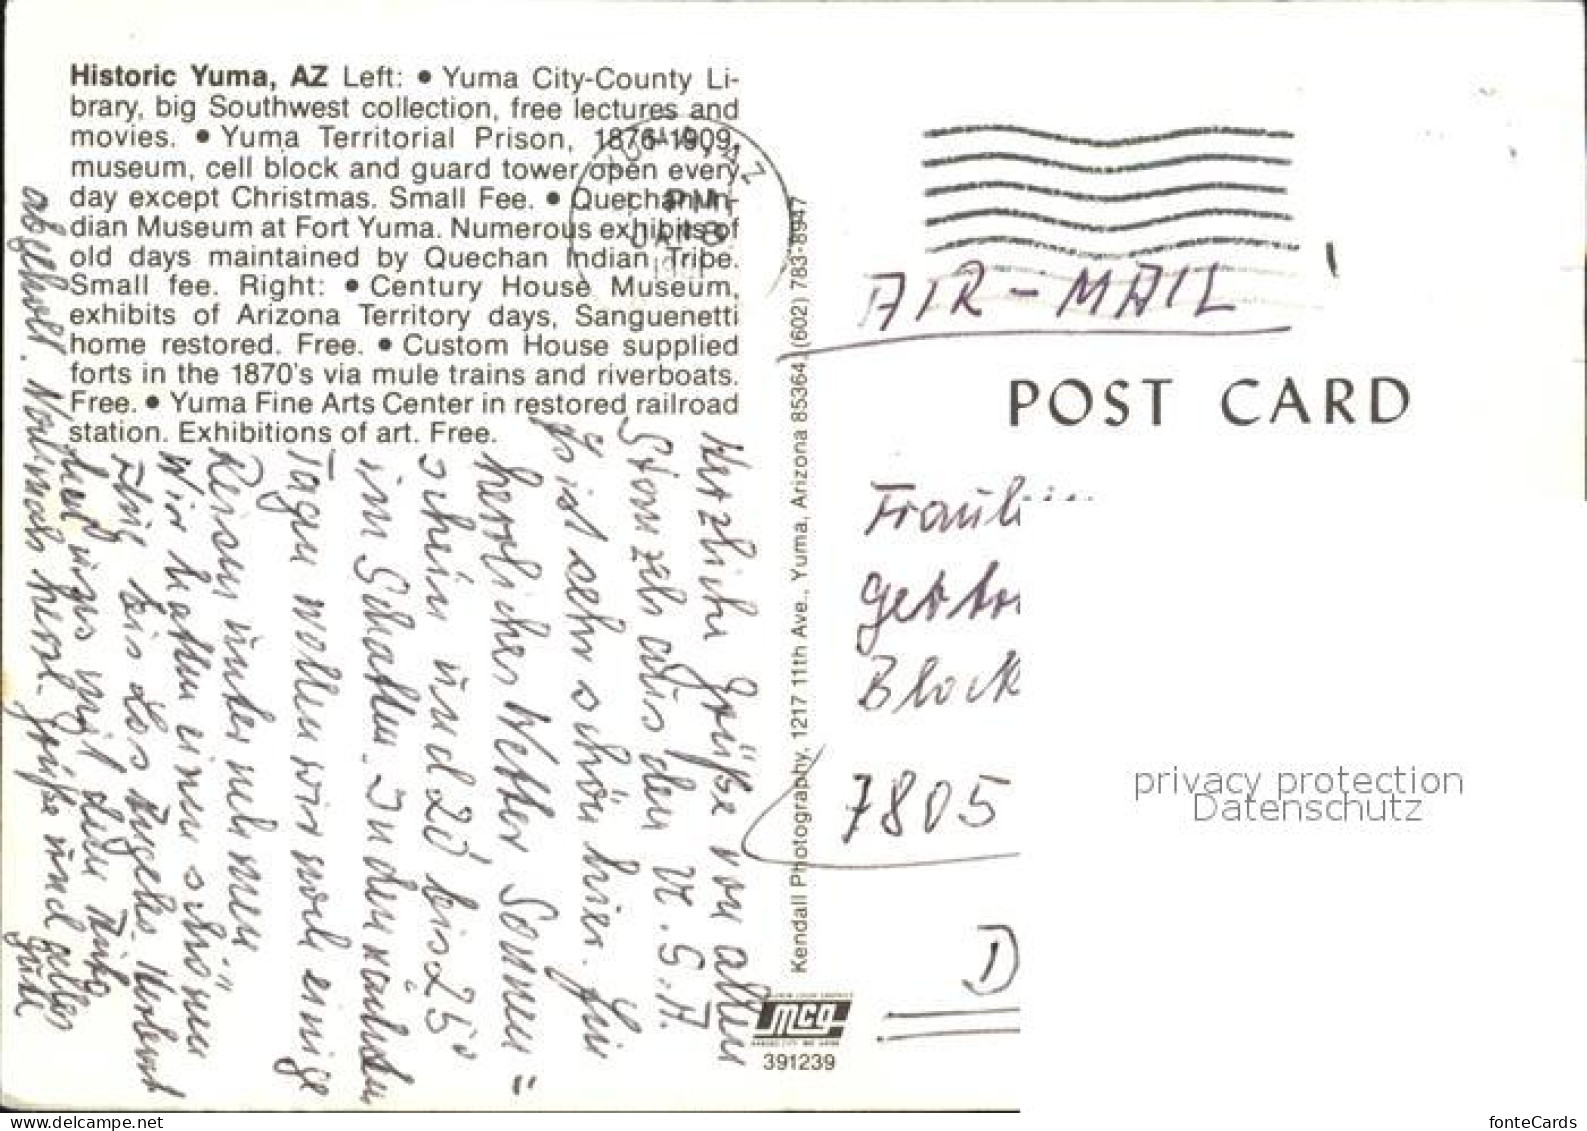 Historic Yuma, AZ Left: • Yuma City-County Li-
brary, big Southwest collection, free lectures and
movies. • Yuma Territorial Prison, 1876-1909,
museum, cell block and guard tower open every
day except Christmas. Small Fee. • Quechan In-
dian Museum at Fort Yuma. Numerous exhibits of
old days maintained by Quechan Indian Tribe.
Small fee. Right: • Century House Museum,
exhibits of Arizona Territory days, Sanguenetti
home restored. Free. • Custom House supplied
forts in the 1870's via mule trains and riverboats.
Free. • Yuma Fine Arts Center in restored railroad
station. Exhibitions of art. Free.
Herzliche Grüße von allen
aus den U.S.A.
Es ist sehr schön hier. Ein
herrliches Wetter, Sonnen=
schein und 20 bis 25°
im Schatten. In den nächsten
Tagen wollen wir noch einige
Reisen unternehmen.
Wir hatten einen schönen
Flug bis Los Angeles. Herbert
hat uns mit dem Auto
abgeholt. Nochmals herzl. Grüße und alles
Gute
PM
Kendall Photography, 1217 11th Ave., Yuma, Arizona 85364, (602) 783-8947
mcg
391239
AIR-MAIL
POST CARD
Block
7805
D
privacy protection
Datenschutz
www.delcampe.net
fonteCards